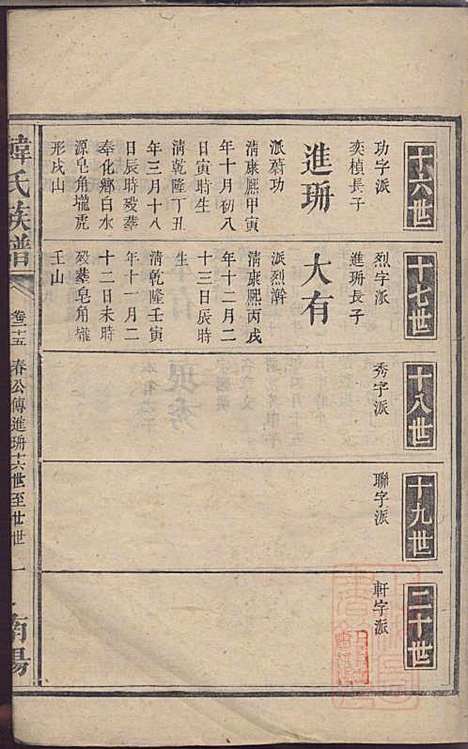 十六世
功字派
奕楨長子
進珊
派蔚功
清康熙甲寅
年十月初八
日寅時生
清乾隆丁丑
年三月十八
日辰時歿葬
奉化鄉白水
源皂角壠虎
形戌山
十七世
烈字派
進珊長子
大有
派烈瀚
清康熙丙戌
年十二月二
十三日辰時
清乾隆壬寅
年十一月二
十二日未時
歿葬皂角壠
壬山
十八世
秀字派
十九世
聯字派
二十世
軒字派
韓氏族譜
春公傳進珊十六世至廿世
一
南陽